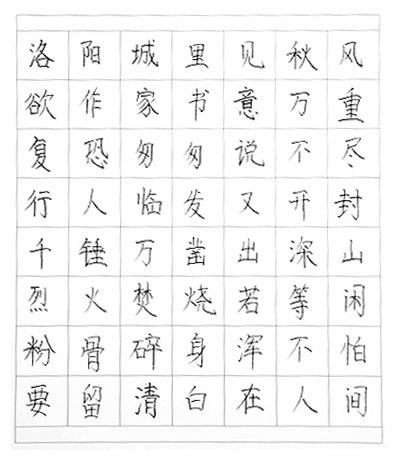 洛阳城里见秋风
欲作家书意万重
复恐匆匆说不尽
行人临发又开封
千锤万凿出深山
烈火焚烧若等闲
粉骨碎身浑不怕
要留清白在人间